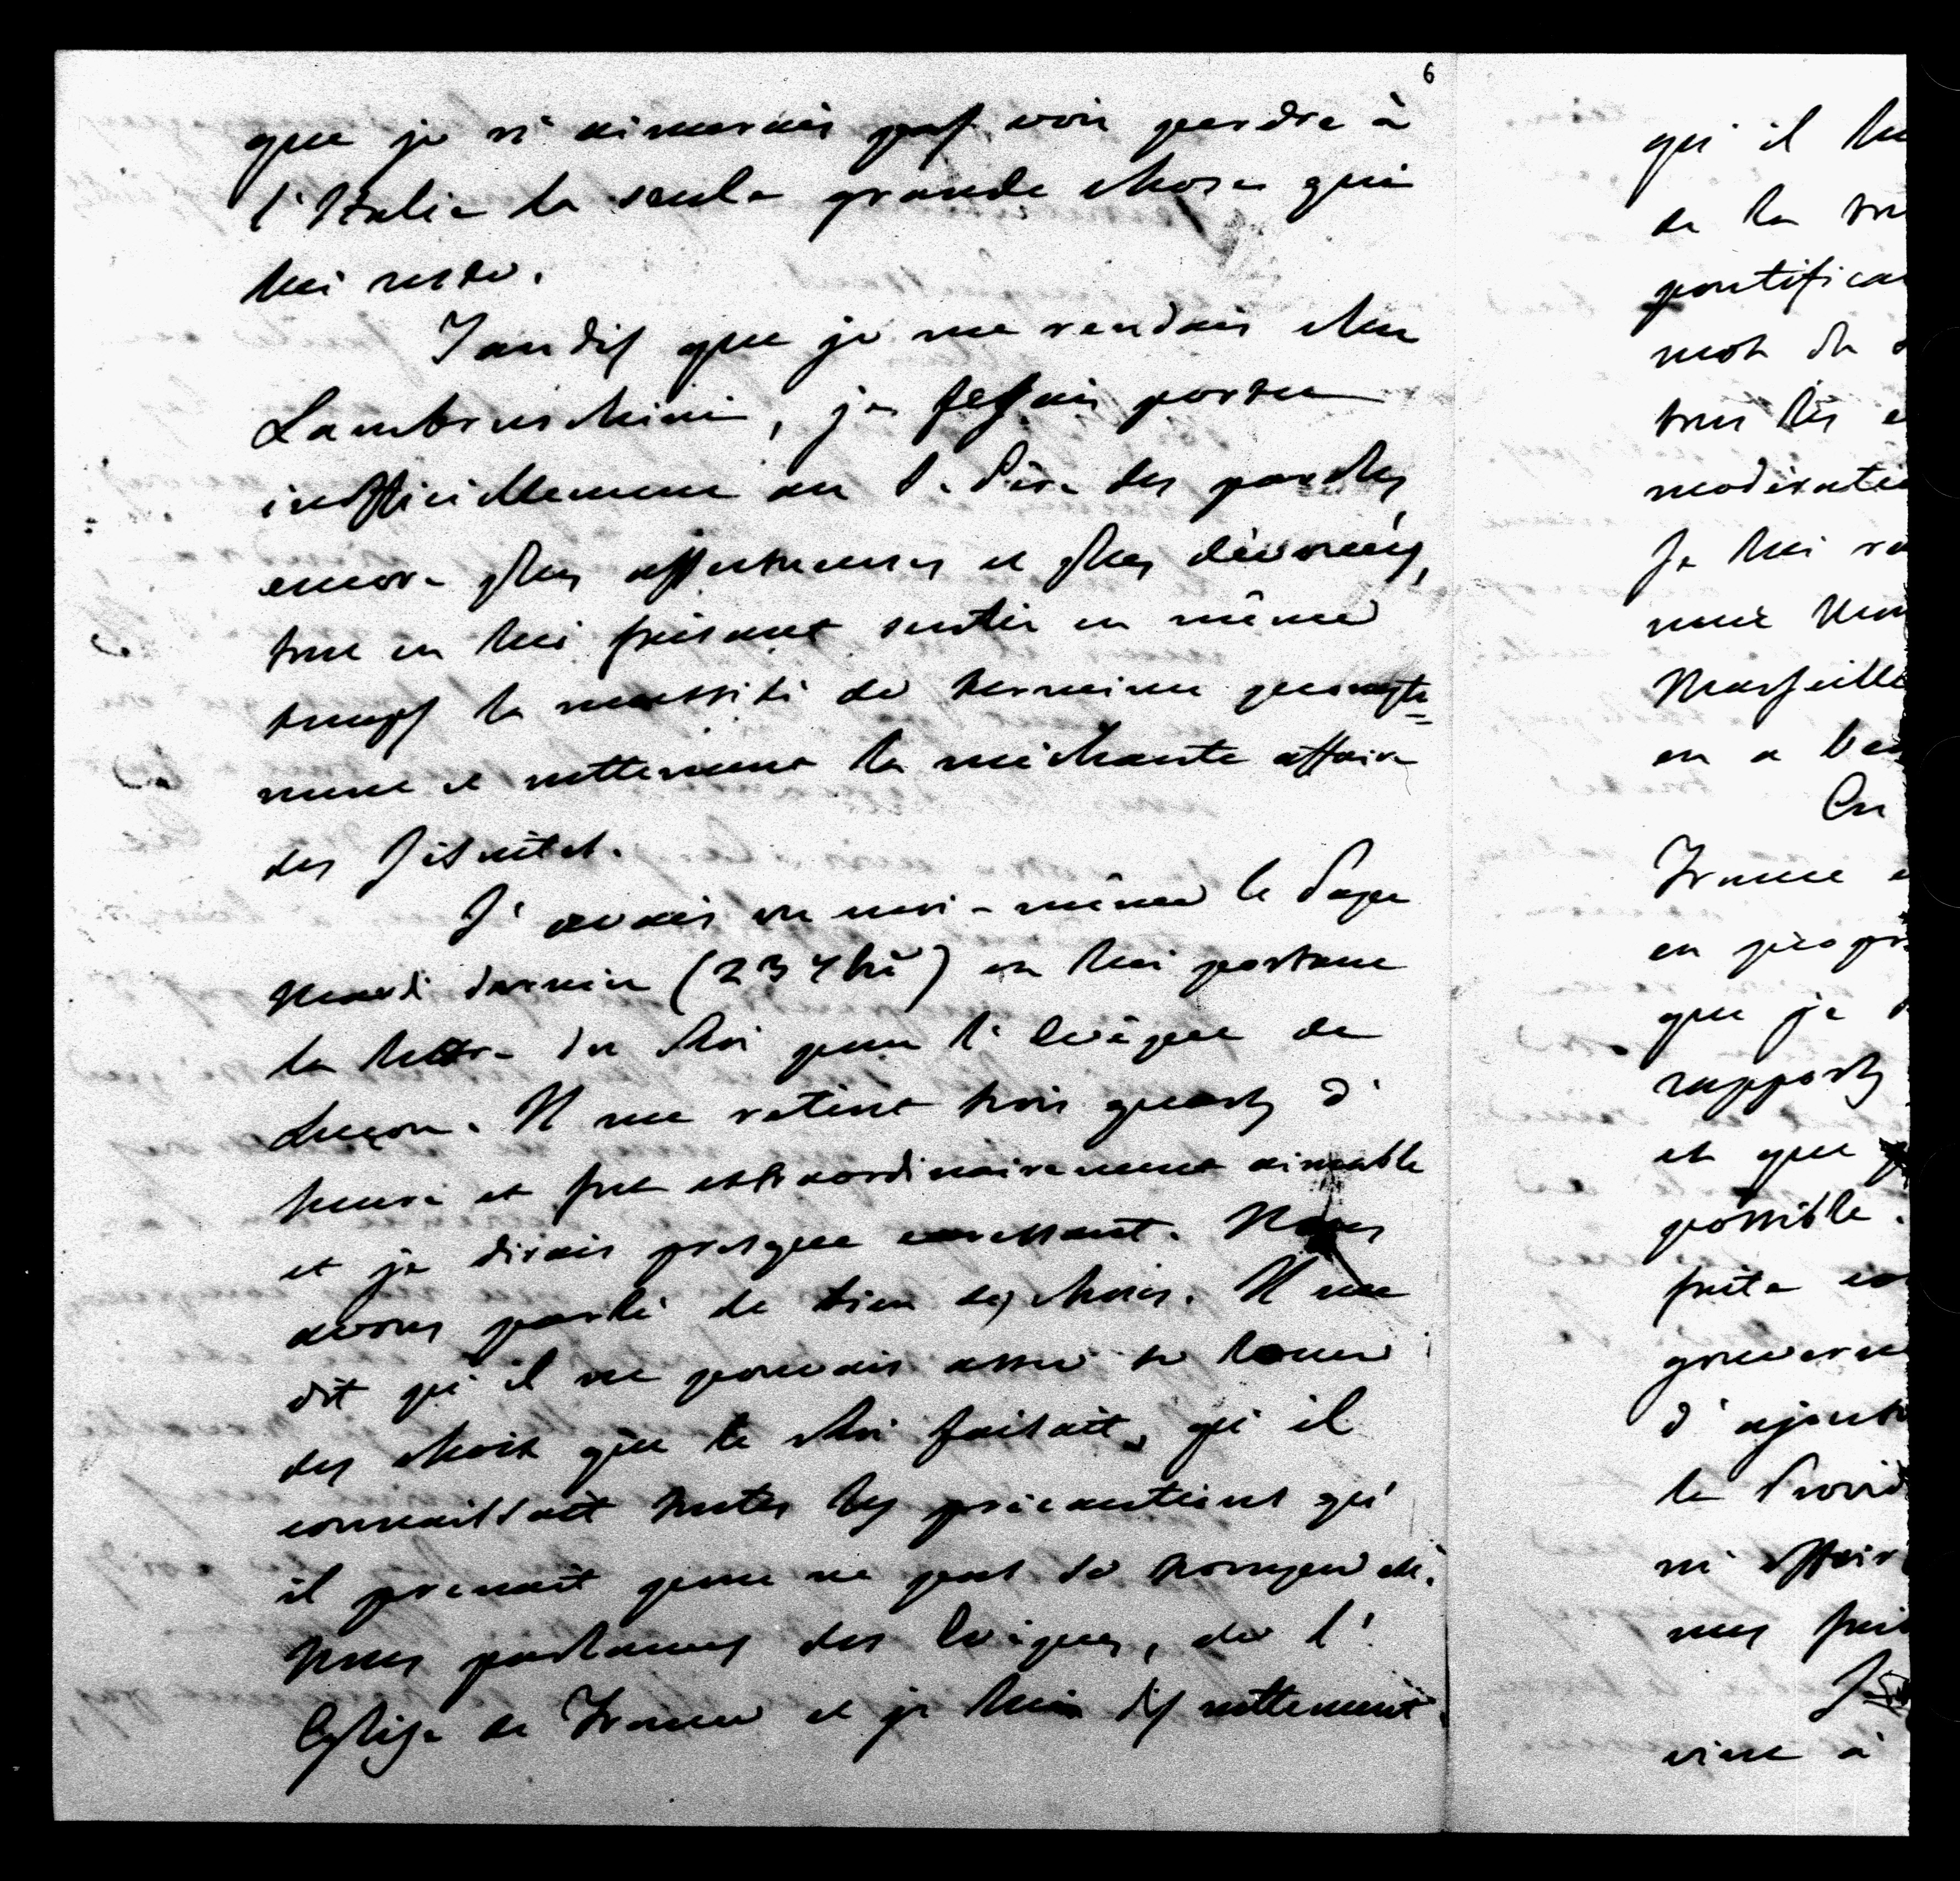 6
que je n'aimerais pas voir perdre à
l'Italie la seule grande chose qui
lui reste.
Tandis que je me rendais chez
Lambruschini, je fesais porter
inofficiellement au S. Père des paroles
encore plus affectueuses et plus dévouées,
tout en lui faisant sentir en même
temps la nécessité de terminer prompte=
ment et nettement la méchante affaire
des Jésuites.
J'avais vu moi-même le Pape
mardi dernier (23 )  en lui portant
la lettre du Roi pour l'Evêque de
Luçon. Il me retint trois quarts d'
heure et fut extraordinairement aimable
et je dirais presque caressant. Nous
avons parlé de bien des choses. Il me
dit qu'il ne pouvait assez se louer
des choix que le Roi faisait, qu'il
connaissait toutes les précautions qu'
il prenait pour ne pas se tromper etc.
Nous parlames des Evêques, de l'
Eglise de France et je lui dis nettement
qu'il
de la
pontifica
mot de
tous les
modératio
Je lui
Marseille
on a
En
France
que je
rapports
et que
possible.
faite
gouverne
d'ajoute
la Provid
ni affair
nous fai
vint à